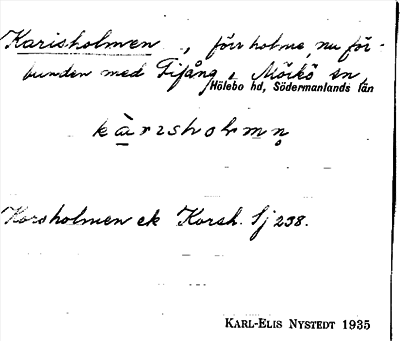 Karisholmen, förr holme, nu för-
bunden med Fifång i Mörkö sn,
Hölebo hd, Södermanlands län
kàrısholmn̥
Korsholmen ek Korsh. Sj 238.
KARL-ELIS NYSTEDT 1935